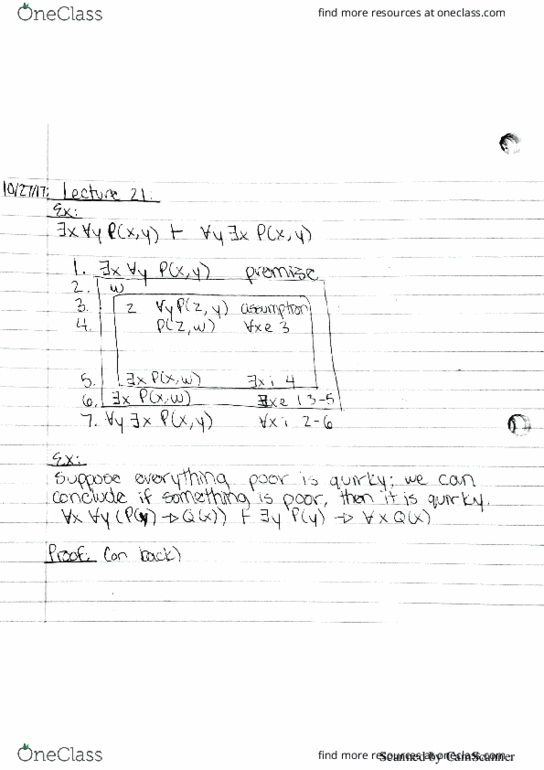 OneClass
find more resources at oneclass.com
10/27/17: Lecture 21:
Ex:
∃x ∀y P(x,y) ⊢ ∀y ∃x P(x,y)
1. ∃x ∀y P(x,y) premise
2. w
3. z ∀y P(z,y) assumption
4. P(z,w) ∀xe 3
5. ∃x P(x,w) ∃xi 4
6. ∃x P(x,w) ∃xe 1 3-5
7. ∀y ∃x P(x,y) ∀xi 2-6
Ex:
Suppose everything poor is quirky; we can
conclude if something is poor, then it is quirky.
∀x ∀y (P(y) → Q(x)) ⊢ ∃y P(y) → ∀x Q(x)
Proof: (on back)
OneClass
find more resources at oneclass.com
Scanned by CamScanner